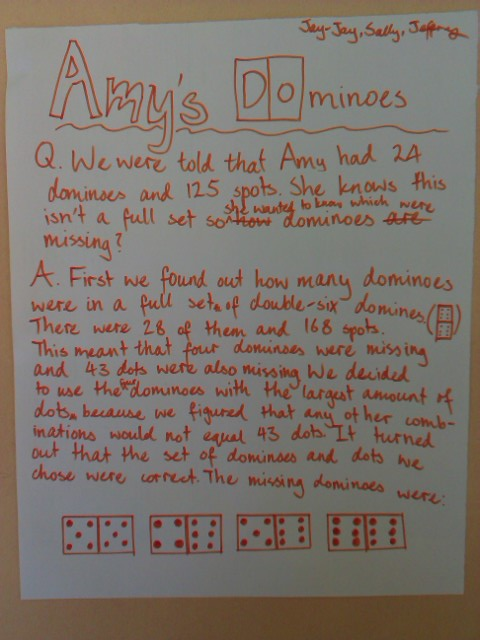 Jay-Jay, Sally, Jeffrey
Amy's Dominoes
Q. We were told that Amy had 24
dominoes and 125 spots. She knows this
she wanted to know which were
isn't a full set so how dominoes are
missing?
A. First we found out how many dominoes
were in a full set of double-six domines.
There were 28 of them and 168 spots.
This meant that four dominoes were missing
and 43 dots were also missing. We decided
to use the four dominoes with the largest amount of
dots, because we figured that any other comb-
inations would not equal 43 dots. It turned
out that the set of dominoes and dots we
chose were correct. The missing dominoes were: